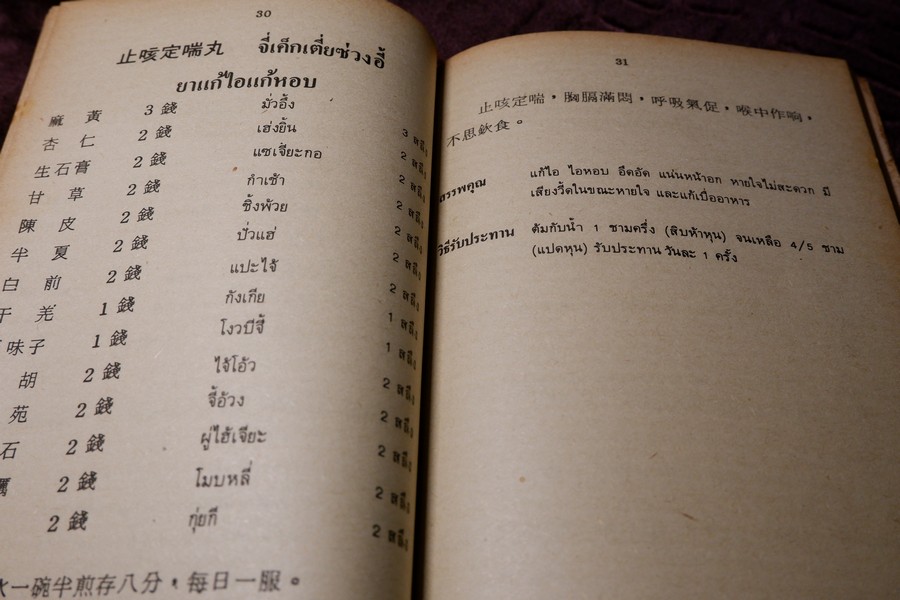 30
止咳定喘丸 จี่เค็กเตี่ยช่วงอี้
ยาแก้ไอแก้หอบ
麻黃 3錢 มั่วอึ้ง 3 หนึง
杏仁 2錢 เฮ่งยิ้น 2 หนึง
生石膏 2錢 แซเจียะกอ 2 หนึง
甘草 2錢 กำเช้า 2 หนึง
陳皮 2錢 ชิ่งพ้วย 2 หนึง
半夏 2錢 ปัวแฮ่ 2 หนึง
白前 2錢 แปะไจ๋ 2 หนึง
干羌 1錢 กังเกีย 1 หนึง
味子 1錢 โงวบีจี้ 1 หนึง
胡 2錢 ไจ้โอ้ว 2 หนึง
苑 2錢 จี้อ้วง 2 หนึง
石 2錢 ผู่ไฮ้เจียะ 2 หนึง
2錢 โมบหลี่ 2 หนึง
2錢 กุ่ยกี 2 หนึง
水一碗半煎存八分，每日一服。
31
止咳定喘，胸膈滿悶，呼吸氣促，喉中作响，
不思飲食。
สรรพคุณ แก้ไอ ไอหอบ อึดอัด แน่นหน้าอก หายใจไม่สะดวก มี
เสียงวี้ดในขณะหายใจ และแก้เบื่ออาหาร
วิธีรับประทาน ต้มกับน้ำ 1 ชามครึ่ง (สิบห้าหุน) จนเหลือ 4/5 ชาม
(แปดหุน) รับประทาน วันละ 1 ครั้ง